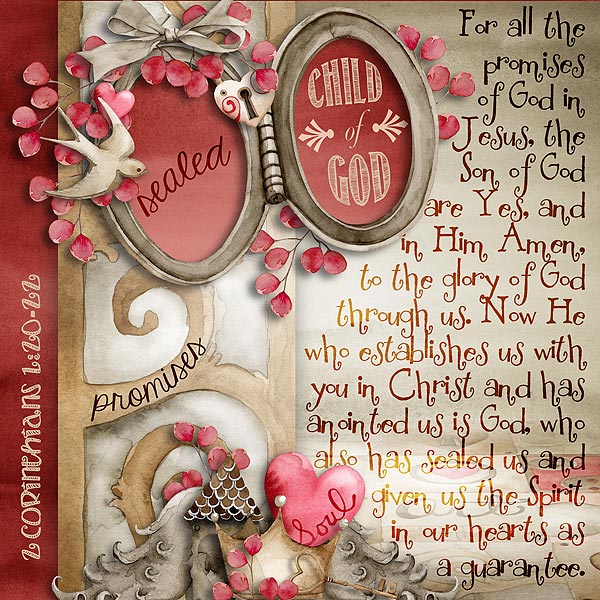 For all the
promises
of God in
Jesus, the
Son of God
are Yes, and
in Him Amen,
to the glory of God
through us. Now He
who establishes us with
you in Christ and has
anointed us is God, who
also has sealed us and
given us the Spirit
in our hearts as
a guarantee.
CHILD
of
GOD
sealed
promises
Soul
2 CORINTHIANS 1:20-22